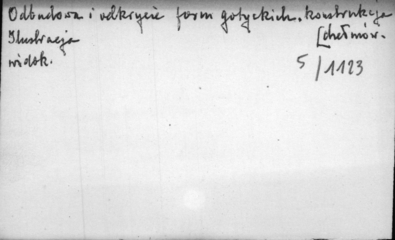 Odbudowa i odkrycie form gotyckich. konstrukcja
Ilustracja [chełmów.
widok.
5/1123